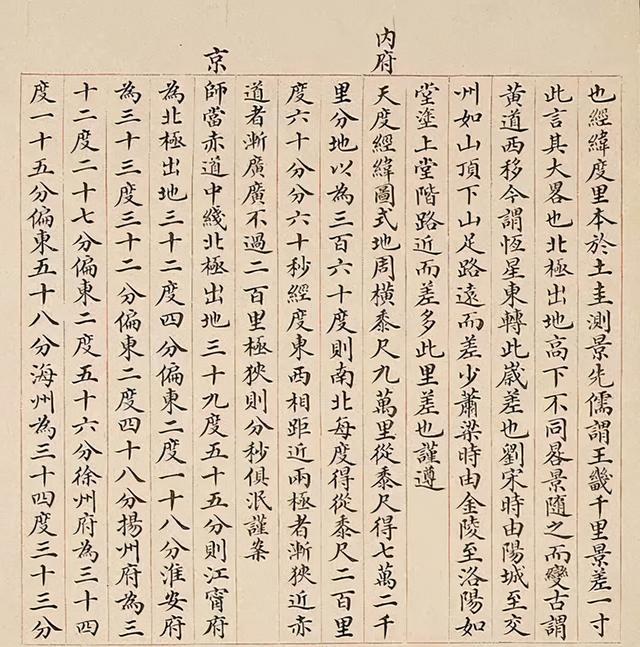 也經緯度里本於土圭測景先儒謂王畿千里景差一寸
此言其大畧也北極出地高下不同晷景隨之而變古謂
黃道西移今謂恆星東轉此歲差也劉宋時由陽城至交
州如山頂下山足路遠而差少蕭梁時由金陵至洛陽如
堂塗上堂階路近而差多此里差也謹遵
內府
天度經緯圖式地周橫黍尺九萬里從黍尺得七萬二千
里分地以為三百六十度則南北每度得從黍尺二百里
度六十分分六十秒經度東西相距近兩極者漸狹近赤
道者漸廣廣不過二百里極狹則分秒俱泯謹案
京
師當赤道中綫北極出地三十九度五十五分則江甯府
為北極出地三十二度四分偏東二度一十八分淮安府
為三十三度三十二分偏東二度四十八分揚州府為三
十二度二十七分偏東二度五十六分徐州府為三十四
度一十五分偏東五十八分海州為三十四度三十三分